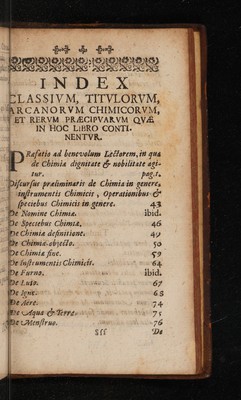 INDEX
CLASSIVM, TITVLORVM,
ARCANORVM CHIMICORVM,
ET RERVM PRÆCIPVARVM QVÆ
IN HOC LIBRO CONTI-
NENTVR.
PRæfatio ad benevolum Lectorem, in qua
de Chimiæ dignitate & nobilitate agi-
tur. pag.1.
Discursus præliminaris de Chimia in genere,
instrumentis Chimicis, Operationibus &
speciebus Chimicis in genere. 43
De Nomine Chimiæ. ibid.
De Speciebus Chimiæ. 46
De Chimiæ definitione. 49
De Chimiæ objecto. 50
De Chimiæ fine. 59
De Instrumentis Chimicis. 64
De Furno. ibid.
De Luto. 67
De Igne. 68
De Aëre. 74
De Aqua & Terra. 75
De Menstruo. 76
De